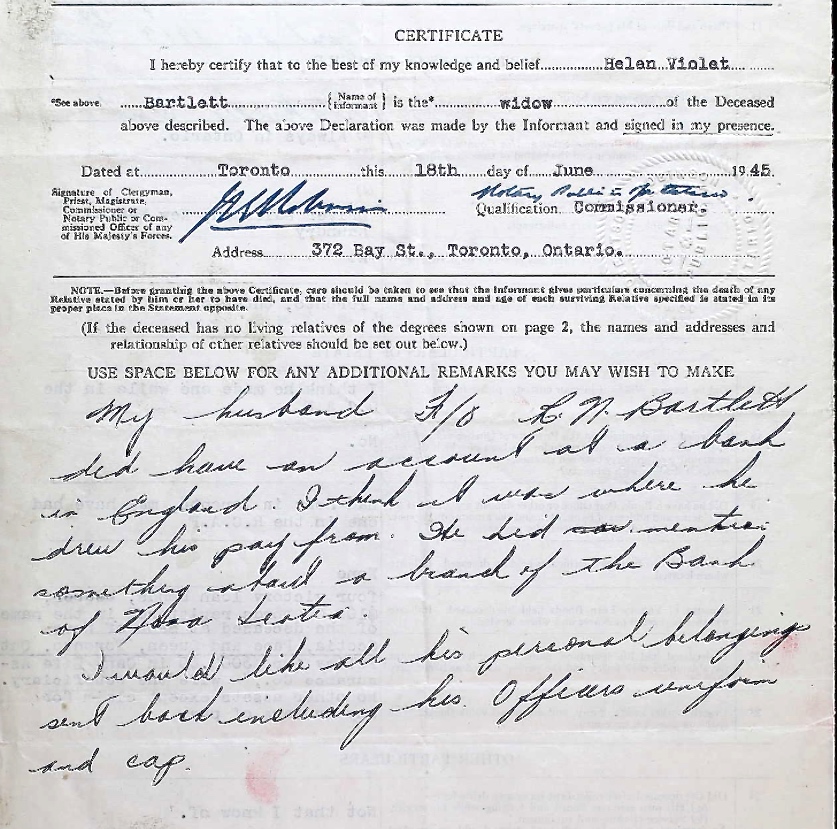 CERTIFICATE
I hereby certify that to the best of my knowledge and belief Helen Violet
*See above. Bartlett {Name of Informant} is the* widow of the Deceased
above described. The above Declaration was made by the Informant and signed in my presence.
Dated at Toronto this 18th day of June 1945.
Signature of Clergyman,
Priest, Magistrate,
Commissioner or
Notary Public or Com-
missioned Officer of any
of His Majesty's Forces.
Notary Public
Qualification Commissioner.
Address 372 Bay St., Toronto, Ontario.
NOTE.—Before granting the above Certificate, care should be taken to see that the Informant gives particulars concerning the death of any
Relative stated by him or her to have died, and that the full name and address and age of each surviving Relative specified is stated in its
proper place in the Statement opposite.
(If the deceased has no living relatives of the degrees shown on page 2, the names and addresses and
relationship of other relatives should be set out below.)
USE SPACE BELOW FOR ANY ADDITIONAL REMARKS YOU MAY WISH TO MAKE
My husband F/O R. N. Bartlett
did have an account at a bank
in England. I think it was where he
drew his pay from. He did mention
something about a branch of the Bank
of Nova Scotia.
I would like all his personal belongings
sent back including his Officers uniform
and cap.